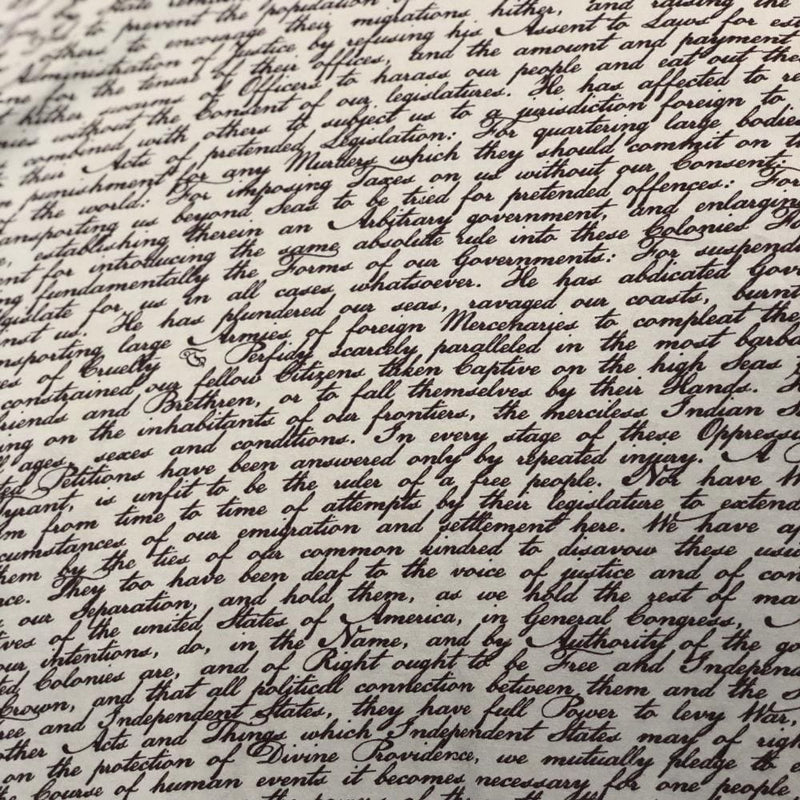 State
to prevent the population of
others to encourage their migrations hither, and raising the
Administration of Justice by refusing his Assent to Laws for est
me for the tenure of their offices, and the amount and payment
t hither swarms of Officers to harass our people and eat out the
ies without the Consent of our legislatures. He has affected to re
combined with others to subject us to a jurisdiction foreign to
their Acts of pretended Legislation: For quartering large bodies
m punishment for any Murders which they should commit on t
f the world: For imposing Taxes on us without our Consent:
ansporting us beyond Seas to be tried for pretended offences: For
e, establishing therein an Arbitrary government, and enlarging
ent for introducing the same absolute rule into these Colonies Fo
ng fundamentally the Forms of our Governments: For suspendi
gislate for us in all cases whatsoever. He has abdicated Gov
nst us. He has plundered our seas, ravaged our coasts, burnt
nsporting large Armies of foreign Mercenaries to compleat the
es of Cruelty & Perfidy scarcely paralleled in the most barba
constrained our fellow Citizens taken Captive on the high Seas
riends and Brethren, or to fall themselves by their Hands. H
ing on the inhabitants of our frontiers, the merciless Indian S
l ages, sexes and conditions. In every stage of these Oppressi
ted Petitions have been answered only by repeated injury. A P
yrant, is unfit to be the ruler of a free people. Nor have W
m from time to time of attempts by their legislature to extend
cumstances of our emigration and settlement here. We have ap
hem by the ties of our common kindred to disavow these usu
nce. They too have been deaf to the voice of justice and of con
our Separation, and hold them, as we hold the rest of ma
ives of the united States of America, in General Congress, A
our intentions, do, in the Name, and by Authority of the go
ted Colonies are, and of Right ought to be Free and Independ
Crown, and that all political connection between them and the S
ree and Independent States, they have full Power to levy War,
other Acts and Things which Independent States may of righ
on the protection of Divine Providence, we mutually pledge to e
he Course of human events it becomes necessary for one people
the powers of the